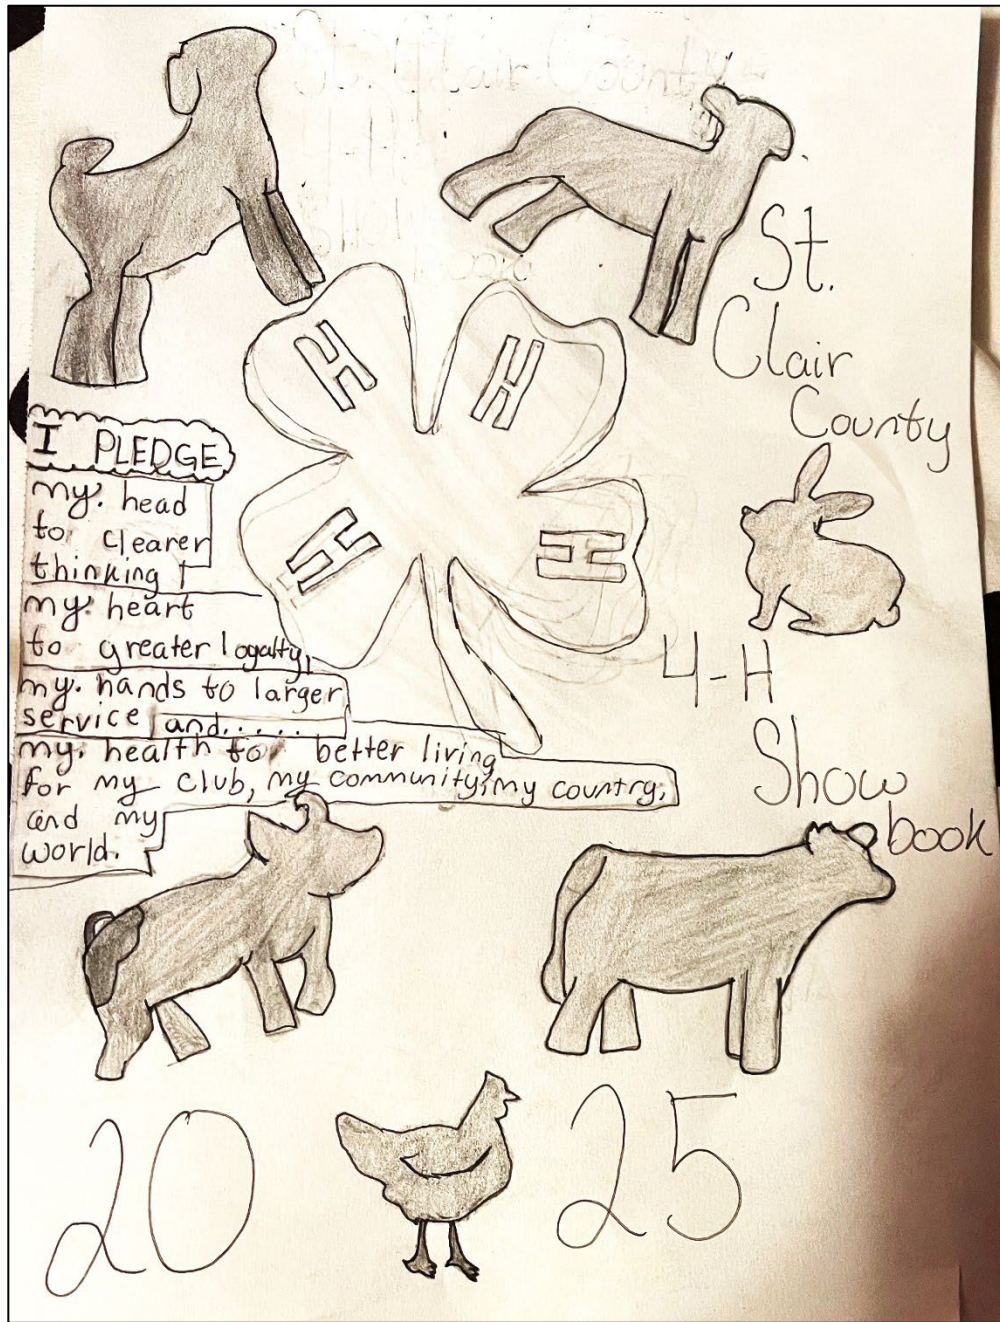 St. Clair County
4-H
St.
Clair
County
H H
H H
I PLEDGE
my head
to clearer
thinking
my heart
to greater loyalty,
my hands to larger
service and.....
my health to better living
for my club, my community, my country,
and my
world.
4-H
Show
book
20 25